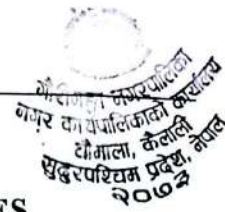 गौरीगङ्गा नगरपालिका
नगर कार्यपालिकाको कार्यालय
चौमाला, कैलाली
सुदूरपश्चिम प्रदेश, नेपाल
२०७३
ES